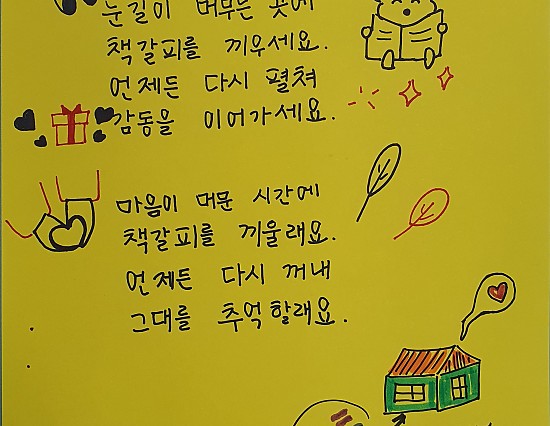 눈길이 머무는 곳에
책갈피를 끼우세요.
언제든 다시 펼쳐
감동을 이어가세요.
마음이 머문 시간에
책갈피를 끼울래요.
언제든 다시 꺼내
그대를 추억할래요.